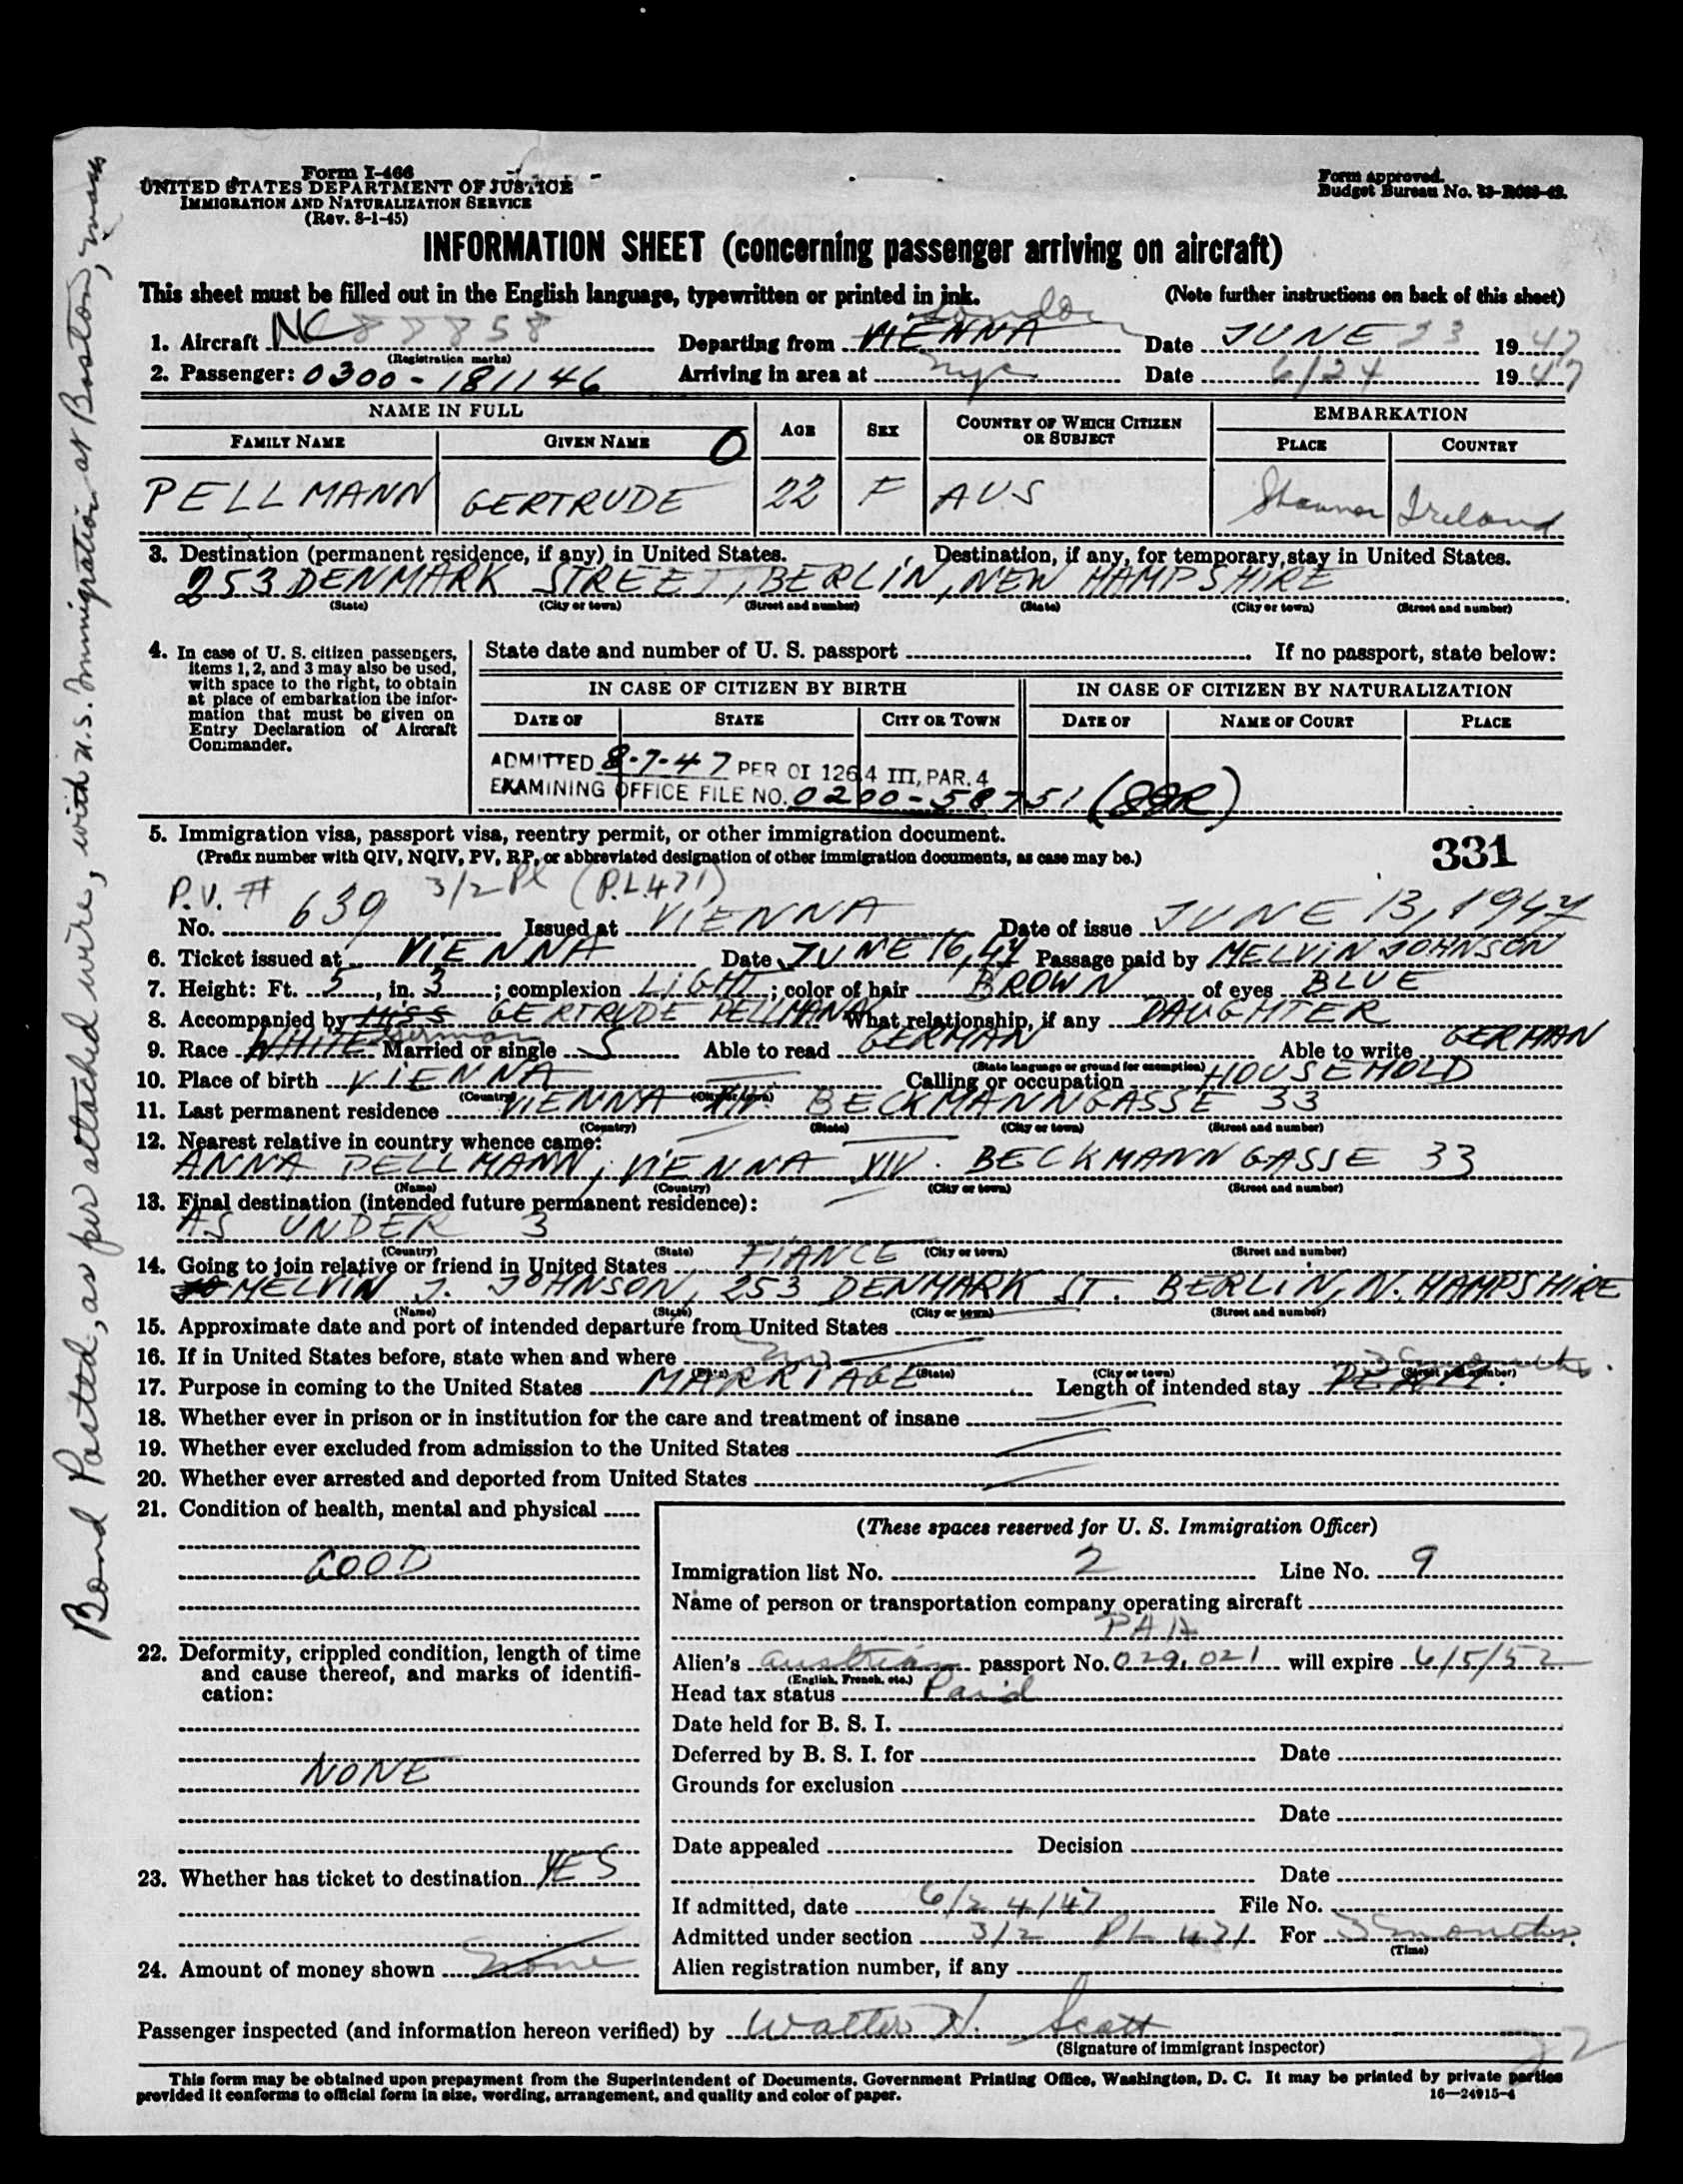 Form I-466
UNITED STATES DEPARTMENT OF JUSTICE
IMMIGRATION AND NATURALIZATION SERVICE
(Rev. 8-1-45)
Form approved.
Budget Bureau No.
INFORMATION SHEET (concerning passenger arriving on aircraft)
This sheet must be filled out in the English language, typewritten or printed in ink. (Note further instructions on back of this sheet)
London
1. Aircraft NC 88858 Departing from VIENNA Date JUNE 23 1947
(Registration marks)
2. Passenger: 0300-181146 Arriving in area at NYC Date 6/24 1947
NAME IN FULL AGE SEX COUNTRY OF WHICH CITIZEN OR SUBJECT EMBARKATION
FAMILY NAME GIVEN NAME O PLACE COUNTRY
PELLMANN GERTRUDE 22 F AUS Shannon Ireland
3. Destination (permanent residence, if any) in United States. Destination, if any, for temporary stay in United States.
253 DENMARK STREET, BERLIN, NEW HAMPSHIRE
(State) (City or town) (Street and number) (State) (City or town) (Street and number)
4. In case of U. S. citizen passengers, items 1, 2, and 3 may also be used, with space to the right, to obtain at place of embarkation the information that must be given on Entry Declaration of Aircraft Commander.
State date and number of U. S. passport If no passport, state below:
IN CASE OF CITIZEN BY BIRTH IN CASE OF CITIZEN BY NATURALIZATION
DATE OF STATE CITY OR TOWN DATE OF NAME OF COURT PLACE
ADMITTED 8-7-47 PER OI 126.4 III, PAR. 4
EXAMINING OFFICE FILE NO. 0200-58751
5. Immigration visa, passport visa, reentry permit, or other immigration document. 331
(Prefix number with QIV, NQIV, PV, RP, or abbreviated designation of other immigration documents, as case may be.)
P.V. # 3/2 PL (P.L.471)
No. 639 Issued at VIENNA Date of issue JUNE 13, 1947
6. Ticket issued at VIENNA Date JUNE 16, 47 Passage paid by MELVIN JOHNSON
7. Height: Ft. 5, in. 3; complexion LIGHT; color of hair BROWN of eyes BLUE
8. Accompanied by MISS GERTRUDE PELLMANN What relationship, if any DAUGHTER
9. Race WHITE German Married or single S Able to read GERMAN Able to write GERMAN
(State language or ground for exemption)
10. Place of birth VIENNA Calling or occupation HOUSEHOLD
(Country) (City or town)
11. Last permanent residence VIENNA XIV. BECKMANNGASSE 33
(Country) (State) (City or town) (Street and number)
12. Nearest relative in country whence came:
ANNA PELLMANN, VIENNA XIV. BECKMANNGASSE 33
(Name) (Country) (City or town) (Street and number)
13. Final destination (intended future permanent residence):
AS UNDER 3
(Country) (State) (City or town) (Street and number)
14. Going to join relative or friend in United States FIANCE
MELVIN J. JOHNSON, 253 DENMARK ST. BERLIN, N. HAMPSHIRE
(Name) (State) (City or town) (Street and number)
15. Approximate date and port of intended departure from United States
16. If in United States before, state when and where no
(State) (City or town) (Street and number)
17. Purpose in coming to the United States MARRIAGE Length of intended stay PERM. 3 months.
18. Whether ever in prison or in institution for the care and treatment of insane
19. Whether ever excluded from admission to the United States
20. Whether ever arrested and deported from United States
21. Condition of health, mental and physical
GOOD
22. Deformity, crippled condition, length of time and cause thereof, and marks of identification:
NONE
23. Whether has ticket to destination YES
24. Amount of money shown none
(These spaces reserved for U. S. Immigration Officer)
Immigration list No. 2 Line No. 9
Name of person or transportation company operating aircraft
PAA
Alien's Austrian passport No. 029,021 will expire 6/5/52
(English, French, etc.)
Head tax status Paid
Date held for B. S. I.
Deferred by B. S. I. for Date
Grounds for exclusion
Date
Date appealed Decision
Date
If admitted, date 6/24/47 File No.
Admitted under section 3/2 PL 471 For 3 months.
(Time)
Alien registration number, if any
Passenger inspected (and information hereon verified) by Walter H. Scott
(Signature of immigrant inspector)
22
This form may be obtained upon prepayment from the Superintendent of Documents, Government Printing Office, Washington, D. C. It may be printed by private parties
provided it conforms to official form in size, wording, arrangement, and quality and color of paper. 16—24915-4
Bond Posted, as per attached wire, with U.S. Immigration at Boston, Mass